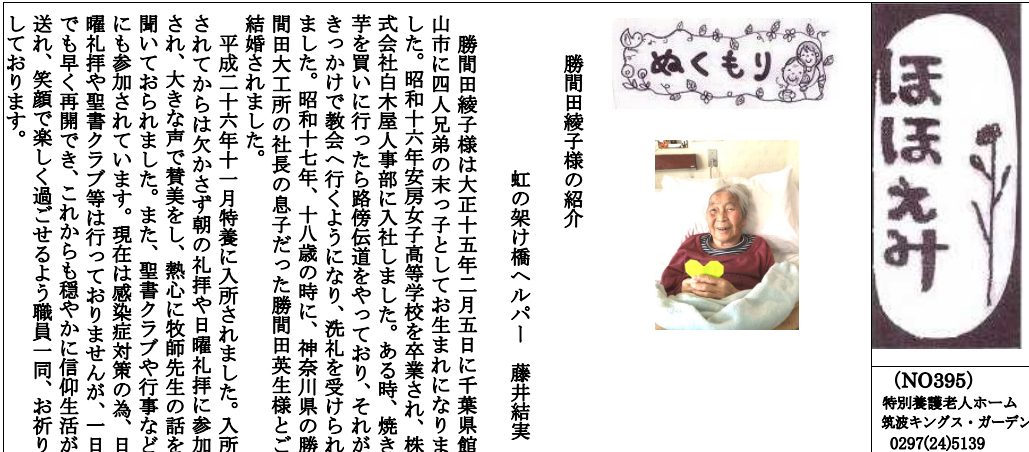 ほほえみ
(NO395)
特別養護老人ホーム
筑波キングス・ガーデン
0297(24)5139
ぬくもり
勝間田綾子様の紹介
虹の架け橋ヘルパー　藤井結実
勝間田綾子様は大正十五年二月五日に千葉県館
山市に四人兄弟の末っ子としてお生まれになりま
した。昭和十六年安房女子高等学校を卒業され、株
式会社白木屋人事部に入社しました。ある時、焼き
芋を買いに行ったら路傍伝道をやっており、それが
きっかけで教会へ行くようになり、洗礼を受けられ
ました。昭和十七年、十八歳の時に、神奈川県の勝
間田大工所の社長の息子だった勝間田英生様とご
結婚されました。
平成二十六年十一月特養に入所されました。入所
されてからは欠かさず朝の礼拝や日曜礼拝に参加
され、大きな声で賛美をし、熱心に牧師先生の話を
聞いておられました。また、聖書クラブや行事など
にも参加されています。現在は感染症対策の為、日
曜礼拝や聖書クラブ等は行っておりませんが、一日
でも早く再開でき、これからも穏やかに信仰生活が
送れ、笑顔で楽しく過ごせるよう職員一同、お祈り
しております。